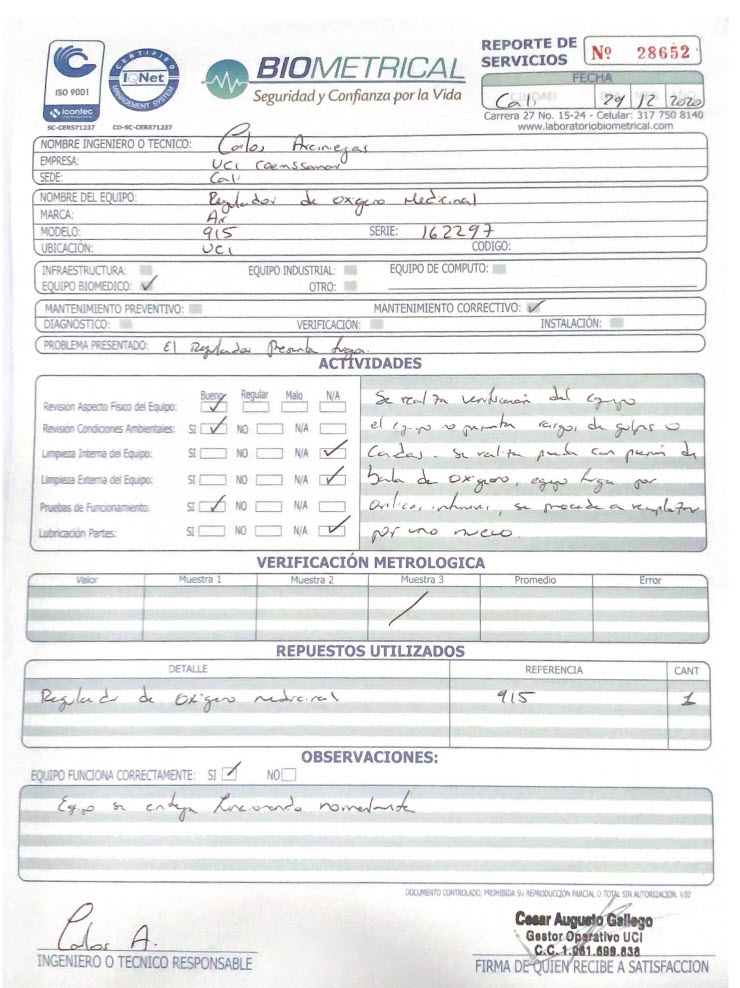 ISO 9001
icontec
SC-CER571237
CERTIFIED
IQNet
MANAGEMENT SYSTEM
CO-SC-CER571237
BIOMETRICAL
Seguridad y Confianza por la Vida
REPORTE DE SERVICIOS
Nº 28652
FECHA
Cali 29 12 2020
Carrera 27 No. 15-24 - Celular: 317 750 8140
www.laboratoriobiometrical.com
NOMBRE INGENIERO O TECNICO: Carlos Arciniegas
EMPRESA: UCI
SEDE: Cali
NOMBRE DEL EQUIPO: Regulador de oxigeno Medicinal
MARCA:
MODELO: 915 SERIE: 162297
UBICACIÓN: UCI CODIGO:
INFRAESTRUCTURA: EQUIPO INDUSTRIAL: EQUIPO DE COMPUTO:
EQUIPO BIOMEDICO: ✓ OTRO:
MANTENIMIENTO PREVENTIVO: MANTENIMIENTO CORRECTIVO: ✓
DIAGNOSTICO: VERIFICACIÓN: INSTALACIÓN:
PROBLEMA PRESENTADO: El Regulador Presenta fuga.
ACTIVIDADES
Bueno Regular Malo N/A
Revisión Aspecto Físico del Equipo: ✓
Revisión Condiciones Ambientales: SI ✓ NO N/A
Limpieza Interna del Equipo: SI NO N/A ✓
Limpieza Externa del Equipo: SI NO N/A ✓
Pruebas de Funcionamiento: SI ✓ NO N/A
Lubricación Partes: SI NO N/A ✓
Se realiza verificación del equipo
el equipo no presenta de golpes o
Caidas. Se realiza prueba con presión de
bala de oxigeno, equipo fuga por
Orificios internos, se procede a remplazar
por uno nuevo.
VERIFICACIÓN METROLOGICA
Valor Muestra 1 Muestra 2 Muestra 3 Promedio Error
REPUESTOS UTILIZADOS
DETALLE REFERENCIA CANT
Regulador de oxigeno medicinal 915 1
OBSERVACIONES:
EQUIPO FUNCIONA CORRECTAMENTE: SI ✓ NO
Equipo se entrega funcionando normalmente
DOCUMENTO CONTROLADO, PROHIBIDA SU REPRODUCCIÓN PARCIAL O TOTAL SIN AUTORIZACIÓN. V.02
Carlos A.
INGENIERO O TECNICO RESPONSABLE
Cesar Augusto Gallego
Gestor Operativo UCI
C.C. 1.061.699.836
FIRMA DE QUIEN RECIBE A SATISFACCION